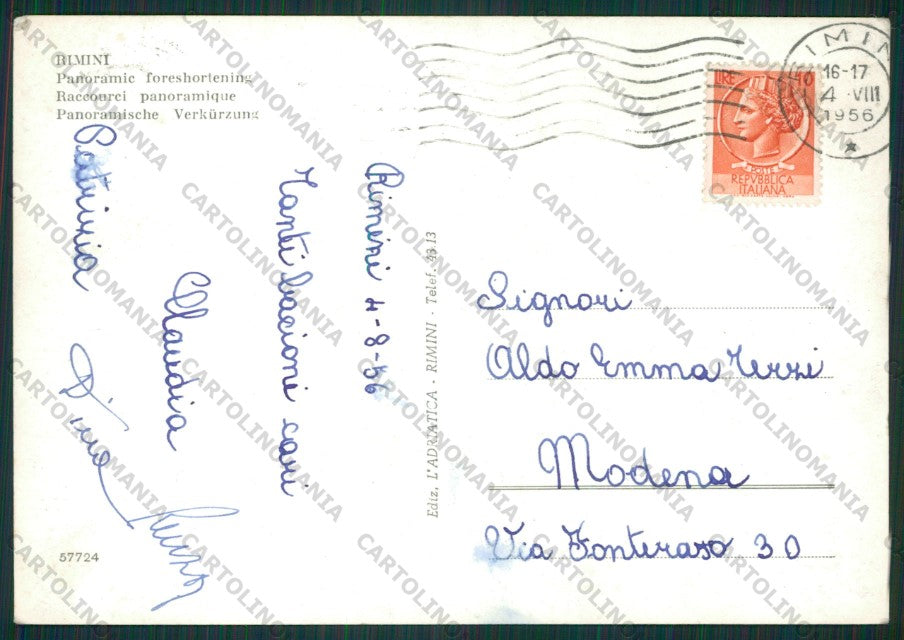 RIMINI
Panoramic foreshortening
Raccourci panoramique
Panoramische Verkürzung
RIMINI
16-17
4 VIII
1956
LIRE
POSTE
REPVBBLICA
ITALIANA
Rimini 4-8-56
Tanti bacioni cari
Claudia
Patrizia
Ediz. L'ADRIATICA - RIMINI - Telef. 43.13
Signori
Aldo Emma Terzi
Modena
Via Fonteraso 30
57724
CARTOLINOMANIA